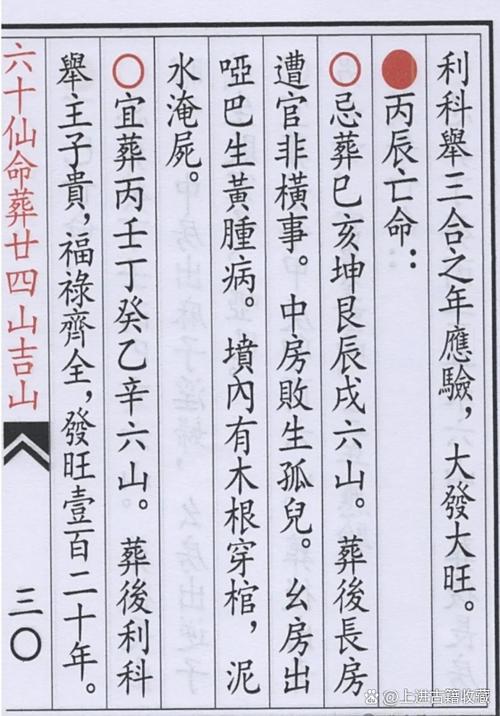 利科舉三合之年應驗，大發大旺。
丙辰亡命：
忌葬巳亥坤艮辰戌六山。葬後長房
遭官非橫事。中房敗生孤兒。幺房出
啞巴生黃腫病。墳內有木根穿棺，泥
水淹屍。
宜葬丙壬丁癸乙辛六山。葬後利科
舉主子貴，福祿齊全，發旺壹百二十年。
六十仙命葬廿四山吉山
三〇
@上洪古籍收藏